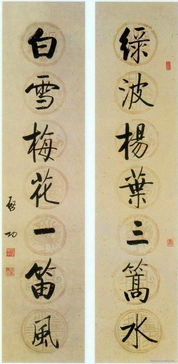 绿波楊葉三篙水
白雪梅花一笛風
啓功